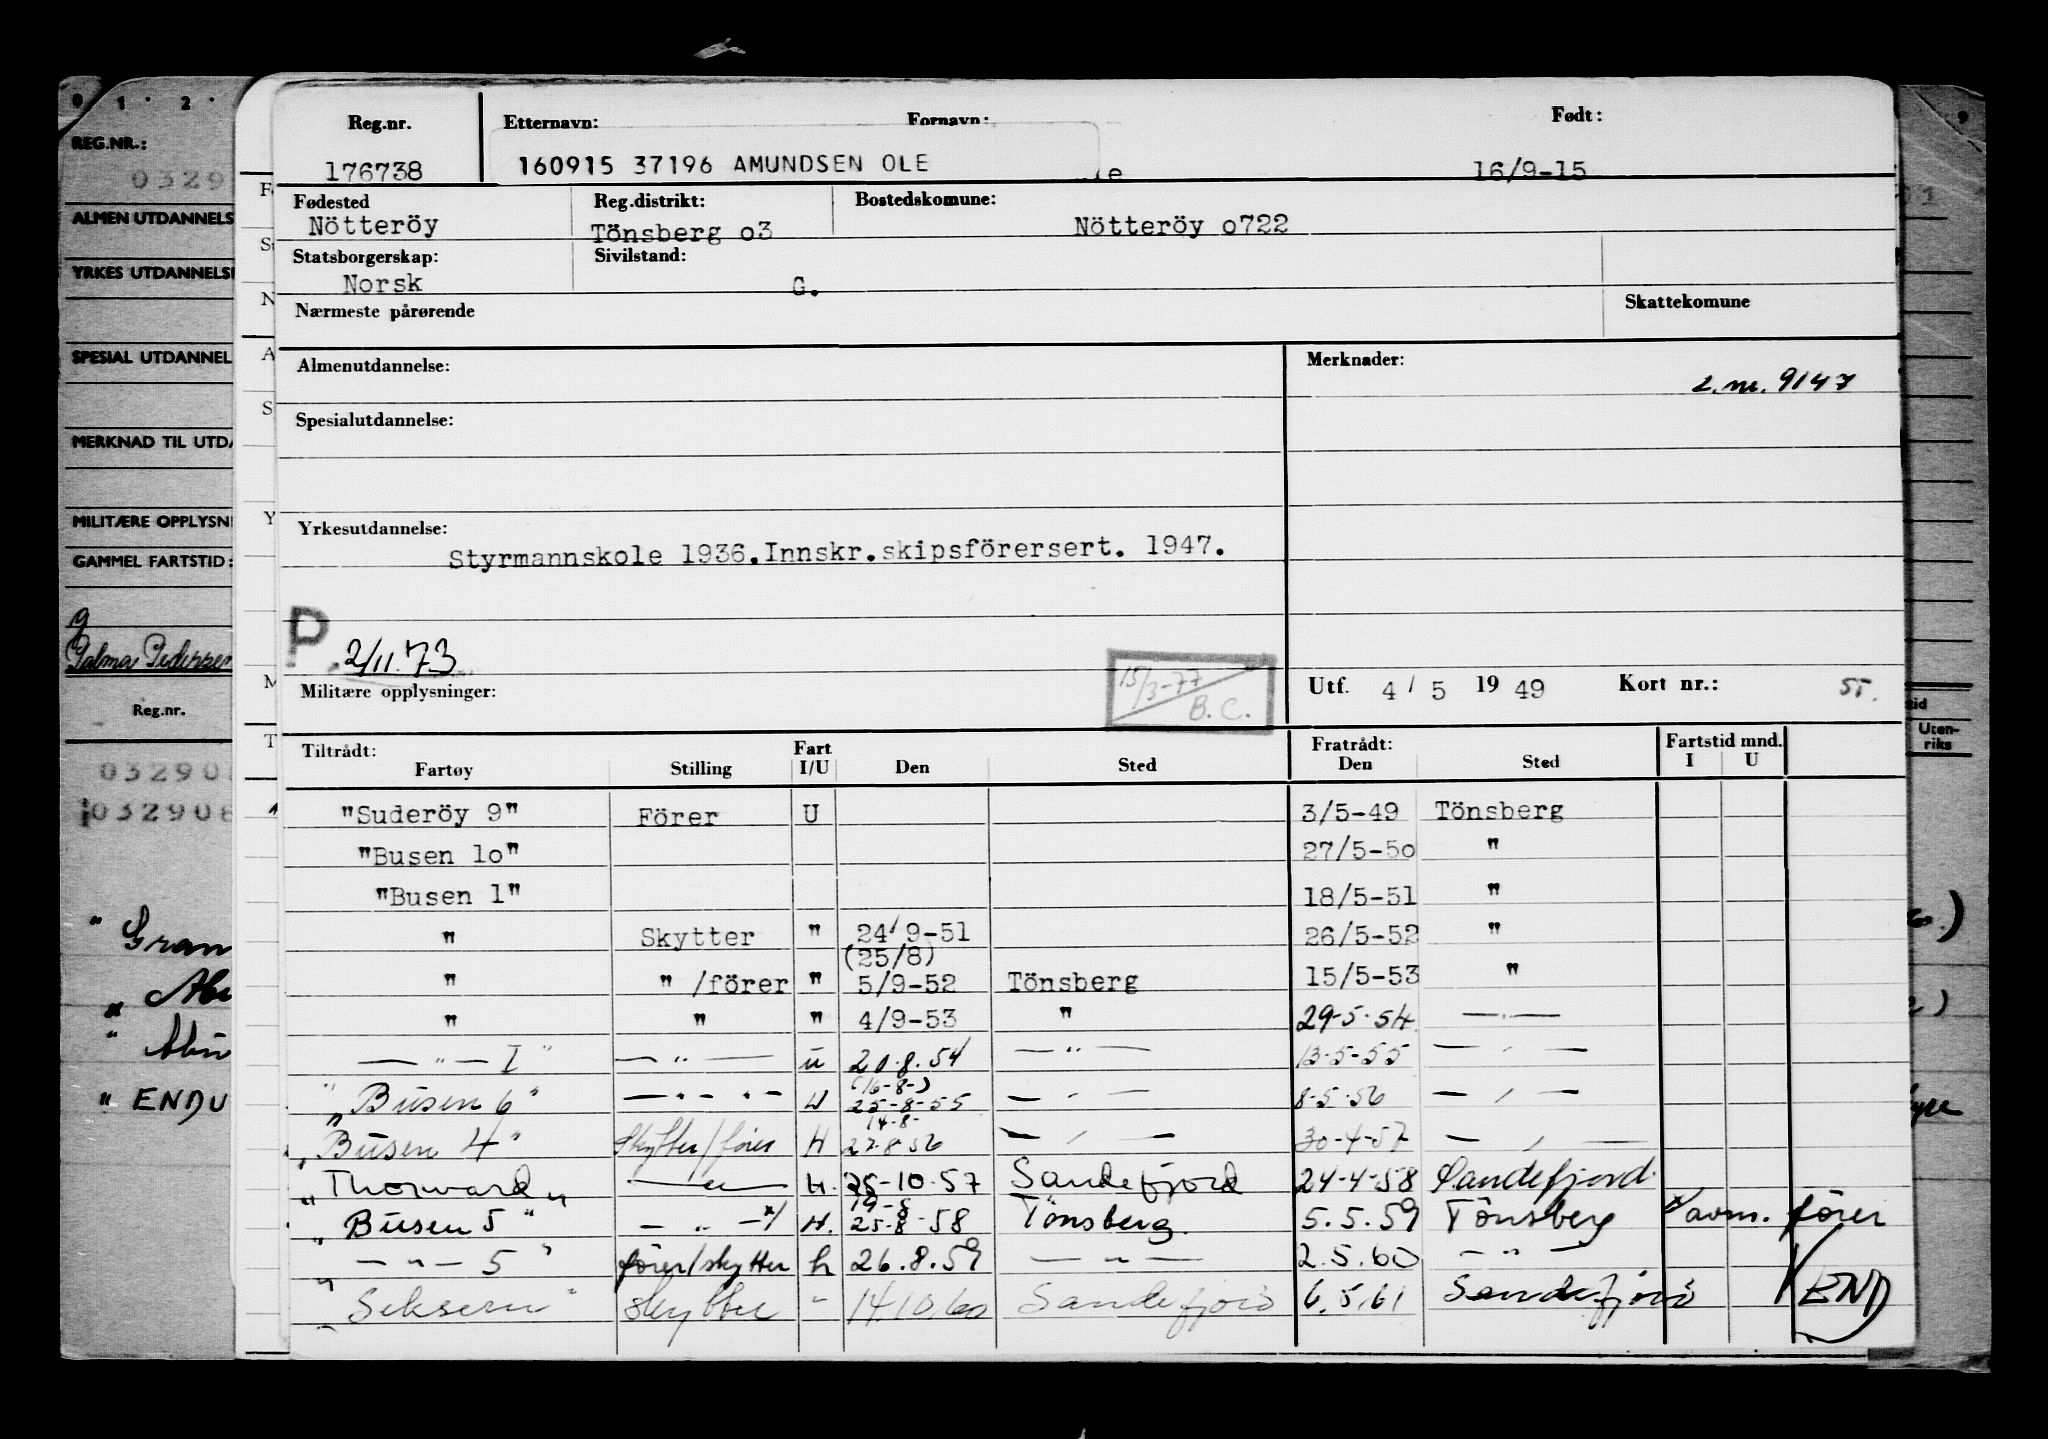 0 1 2 9
REG.NR.:
0329
ALMEN UTDANNELS
YRKES UTDANNELS
SPESIAL UTDANNEL
MERKNAD TIL UTDA
MILITÆRE OPPLYSN
GAMMEL FARTSTID:
Palma Pedersen
Reg.nr.
03290
032908
" Gran
" ENDU
Uten-
riks
Reg.nr. Etternavn: Fornavn: Født:
176738 160915 37196 AMUNDSEN OLE le 16/9-15
Fødested Reg.distrikt: Bostedskomune:
Nötteröy Tönsberg o3 Nötteröy o722
Statsborgerskap: Sivilstand:
Norsk G.
Nærmeste pårørende Skattekomune
Almenutdannelse: Merknader:
L.nr. 9147
Spesialutdannelse:
Yrkesutdannelse:
Styrmannskole 1936.Innskr.skipsförersert. 1947.
P. 2/11.73
15/3-77 B.C.
Militære opplysninger: Utf. 4/5 1949 Kort nr.: 5T.
Tiltrådt: Fart Fratrådt: Fartstid mnd.
Fartøy Stilling I/U Den Sted Den Sted I U
"Suderöy 9" Förer U 3/5-49 Tönsberg
"Busen lo" 27/5-5o "
"Busen 1" 18/5-51 "
" Skytter " 24/9-51 26/5-52 "
(25/8)
" " /förer " 5/9-52 Tönsberg 15/5-53 "
" " " 4/9-53 " 29-5-54 — " —
— " — I " — " — u 20.8.54 — " — 13-5-55 — " —
(16-8-)
" Busen 6 " — " — " — U 25-8-55 — " — 8-5-56 — " —
14-8-
" Busen 4 " Skytter/fører H 27.8.56 — " — 30-4-57 — " —
" Thorvard " — " — H. 25-10-57 Sandefjord 24-4-58 Sandefjord
19-8
" Busen 5 " — " — x/ H. 25-8-58 Tönsberg. 5.5.59 Tönsberg x/ avm. förer
" — " — 5 " fører/skytter h 26.8.59 — " — 2.5.60 — " —
" Seksern " skytter " 14.10.60 Sandefjord 6.5.61 Sandefjord END